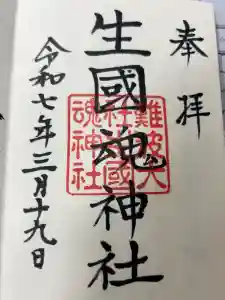 奉拝
生國魂神社
令和七年三月十九日
難波大
社生國
魂神社